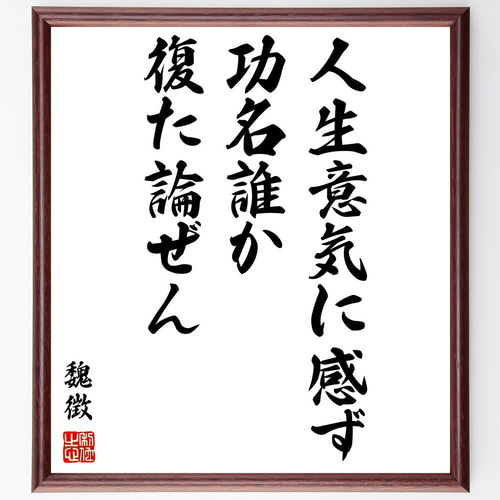 人生意気に感ず
功名誰か
復た論ぜん
魏徴